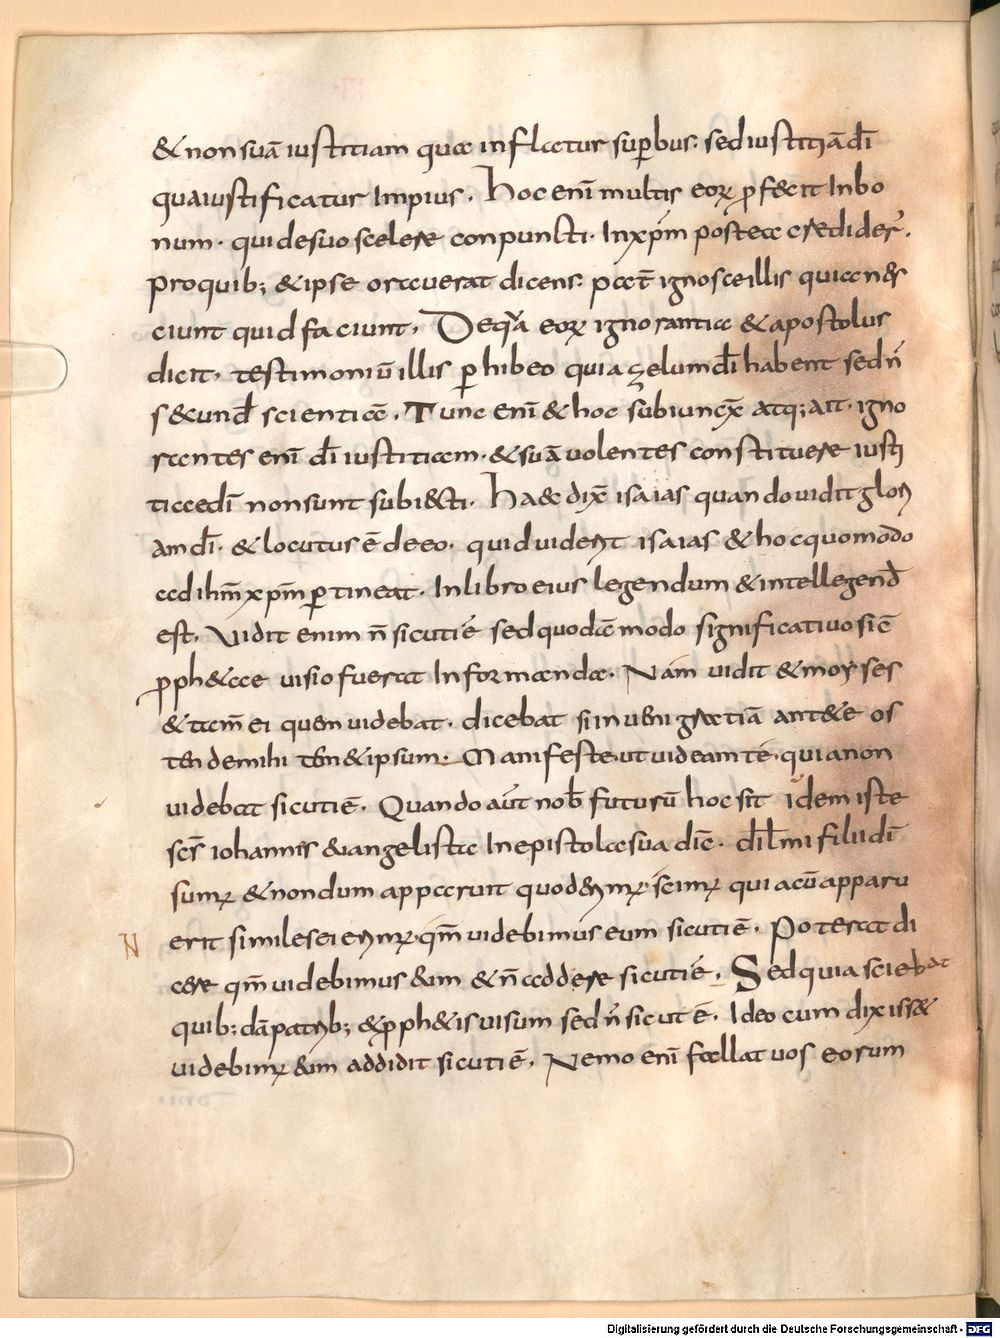 &nonsuā iustitiam qua inflatur suꝑbus. sed iustitiā dī
qua iustificatur Impius. hoc enī multis eoꝝ ꝓfecit Inbo
num. qui de suo scelere conpuncti. In xp̄m postea crediderͬ.
pro quib; & ipse orauerat dicens. pat̄ ignosce illis qui a nes
ciunt quid faciunt. De q̄a eoꝝ ignorantia & apostolus
dicit. testimoniū illis ꝑhibeo quia zelum dī habent sed n̄
s&und̄ scientiā. Tunc enī & hoc subiunẋ atq; ait. igno
rantes enī dī iustitiam. & suā uolentes constituere iusti
tiae dī non sunt subi&ti. haec dix̄ isaias quando uidit glori
am dī. & locutus ē de eo. quid uiderit isaias & hoc quomodo
ad ihm̄ xp̄m ꝑtineat. In libro eius legendum & intellegend̄
est. Vidit enim n̄ sicuti ē sed quodā modo significatiuo sic̄
ꝓph&ae uisio fuerat Informanda. Nam uidit & moyses
& tam̄ ei quem uidebat. dicebat si inueni gratiā ante te os
tende mihi tem&ipsum. Manifeste ut uideam te. quia non
uidebat sicuti ē. Quando aūt nob̄ futurū hoc sit idem iste
sc̄s iohannis euangelista In epistola sua dic̄. dīlmi filii dī
sumꝰ & nondum apparuit quod erimꝰ. scimꝰ quia cū apparu
N erit similes ei erimꝰ. qm̄ uidebimus eum sicuti ē. Poterat di
cere qm̄ uidebimus eum & n̄ addere sicuti ē. Sed quia sciebat
quib; dā patrib; & ꝓph&is uisum sed n̄ sicuti ē. Ideo cum dixiss&
uidebimꝰ eum addidit sicuti ē. Nemo enī fallat uos eorum
Digitalisierung gefördert durch die Deutsche Forschungsgemeinschaft - DFG